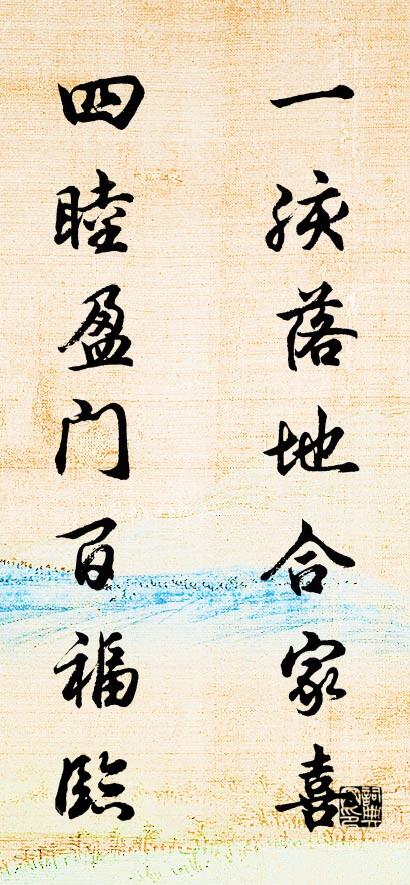 一孩落地合家喜
四睦盈门百福临